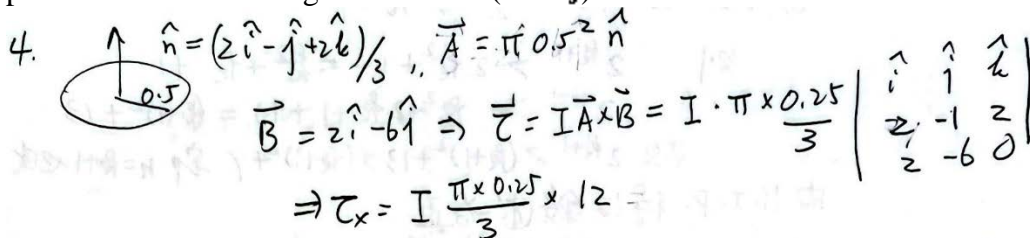 4. n̂ = (2î - ĵ + 2k̂)/3, A⃗ = π 0.5² n̂
0.5
B⃗ = 2î - 6ĵ ⇒ τ⃗ = I A⃗ × B⃗ = I · π × 0.25/3 | î ĵ k̂ |
| 2 -1 2 |
| 2 -6 0 |
⇒ τx = I π × 0.25/3 × 12